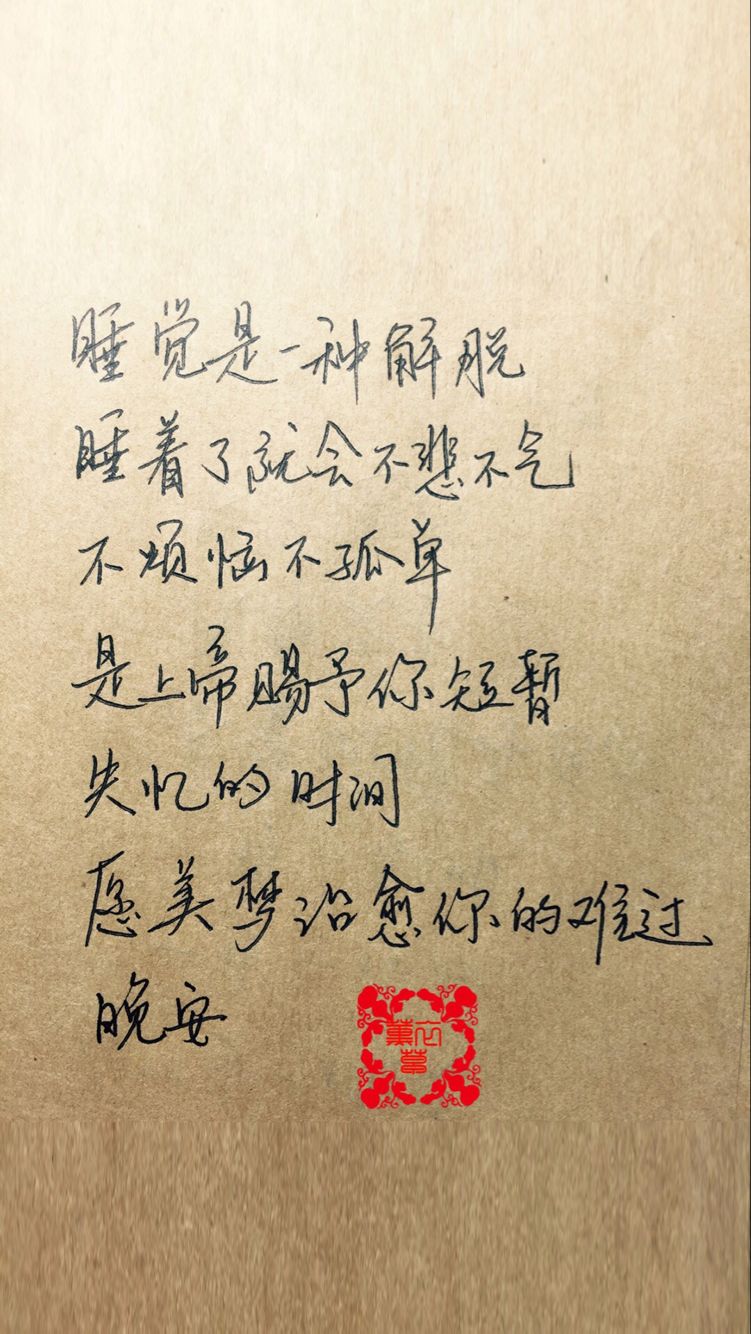 睡觉是一种解脱
睡着了就会不悲不气
不烦恼不孤单
是上帝赐予你短暂
失忆的时间
愿美梦治愈你的难过
晚安
薰衣草